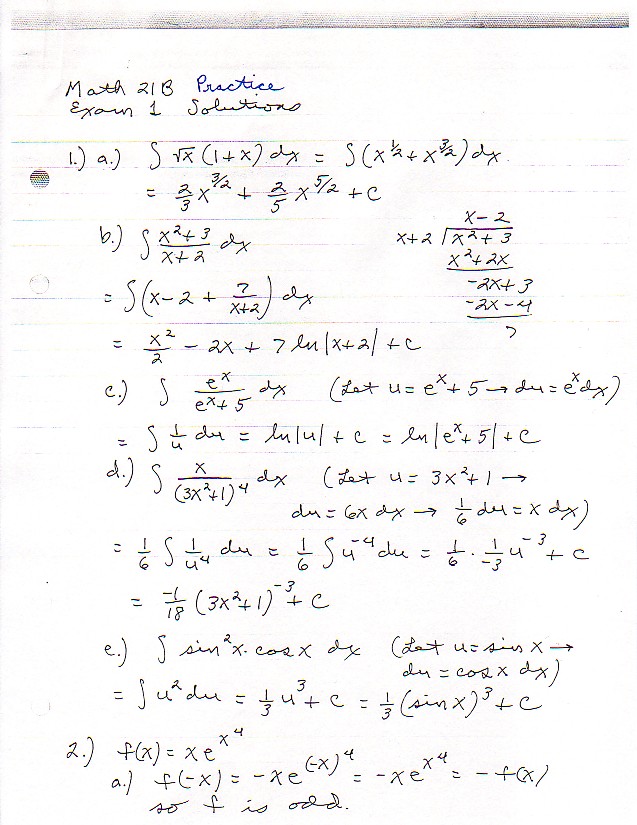 Math 21B Practice
Exam 1 Solutions
1.) a.) ∫ √x (1+x) dx = ∫ (x^{1/2} + x^{3/2}) dx.
= 2/3 x^{3/2} + 2/5 x^{5/2} + c
b.) ∫ (x²+3)/(x+2) dx
x-2
x+2 / x²+3
x²+2x
-2x+3
-2x-4
7
= ∫ (x-2 + 7/(x+2)) dx
= x²/2 - 2x + 7 ln|x+2| + c
c.) ∫ e^x/(e^x+5) dx (Let u = e^x+5 → du = e^x dx)
= ∫ 1/u du = ln|u| + c = ln|e^x+5| + c
d.) ∫ x/(3x²+1)^4 dx (Let u = 3x²+1 →
du = 6x dx → 1/6 du = x dx)
= 1/6 ∫ 1/u^4 du = 1/6 ∫ u^{-4} du = 1/6 · 1/-3 u^{-3} + c
= -1/18 (3x²+1)^{-3} + c
e.) ∫ sin²x · cos x dx (Let u = sin x →
du = cos x dx)
= ∫ u² du = 1/3 u³ + c = 1/3 (sin x)³ + c
2.) f(x) = x e^{x^4}
a.) f(-x) = -x e^{(-x)^4} = -x e^{x^4} = -f(x)
so f is odd.